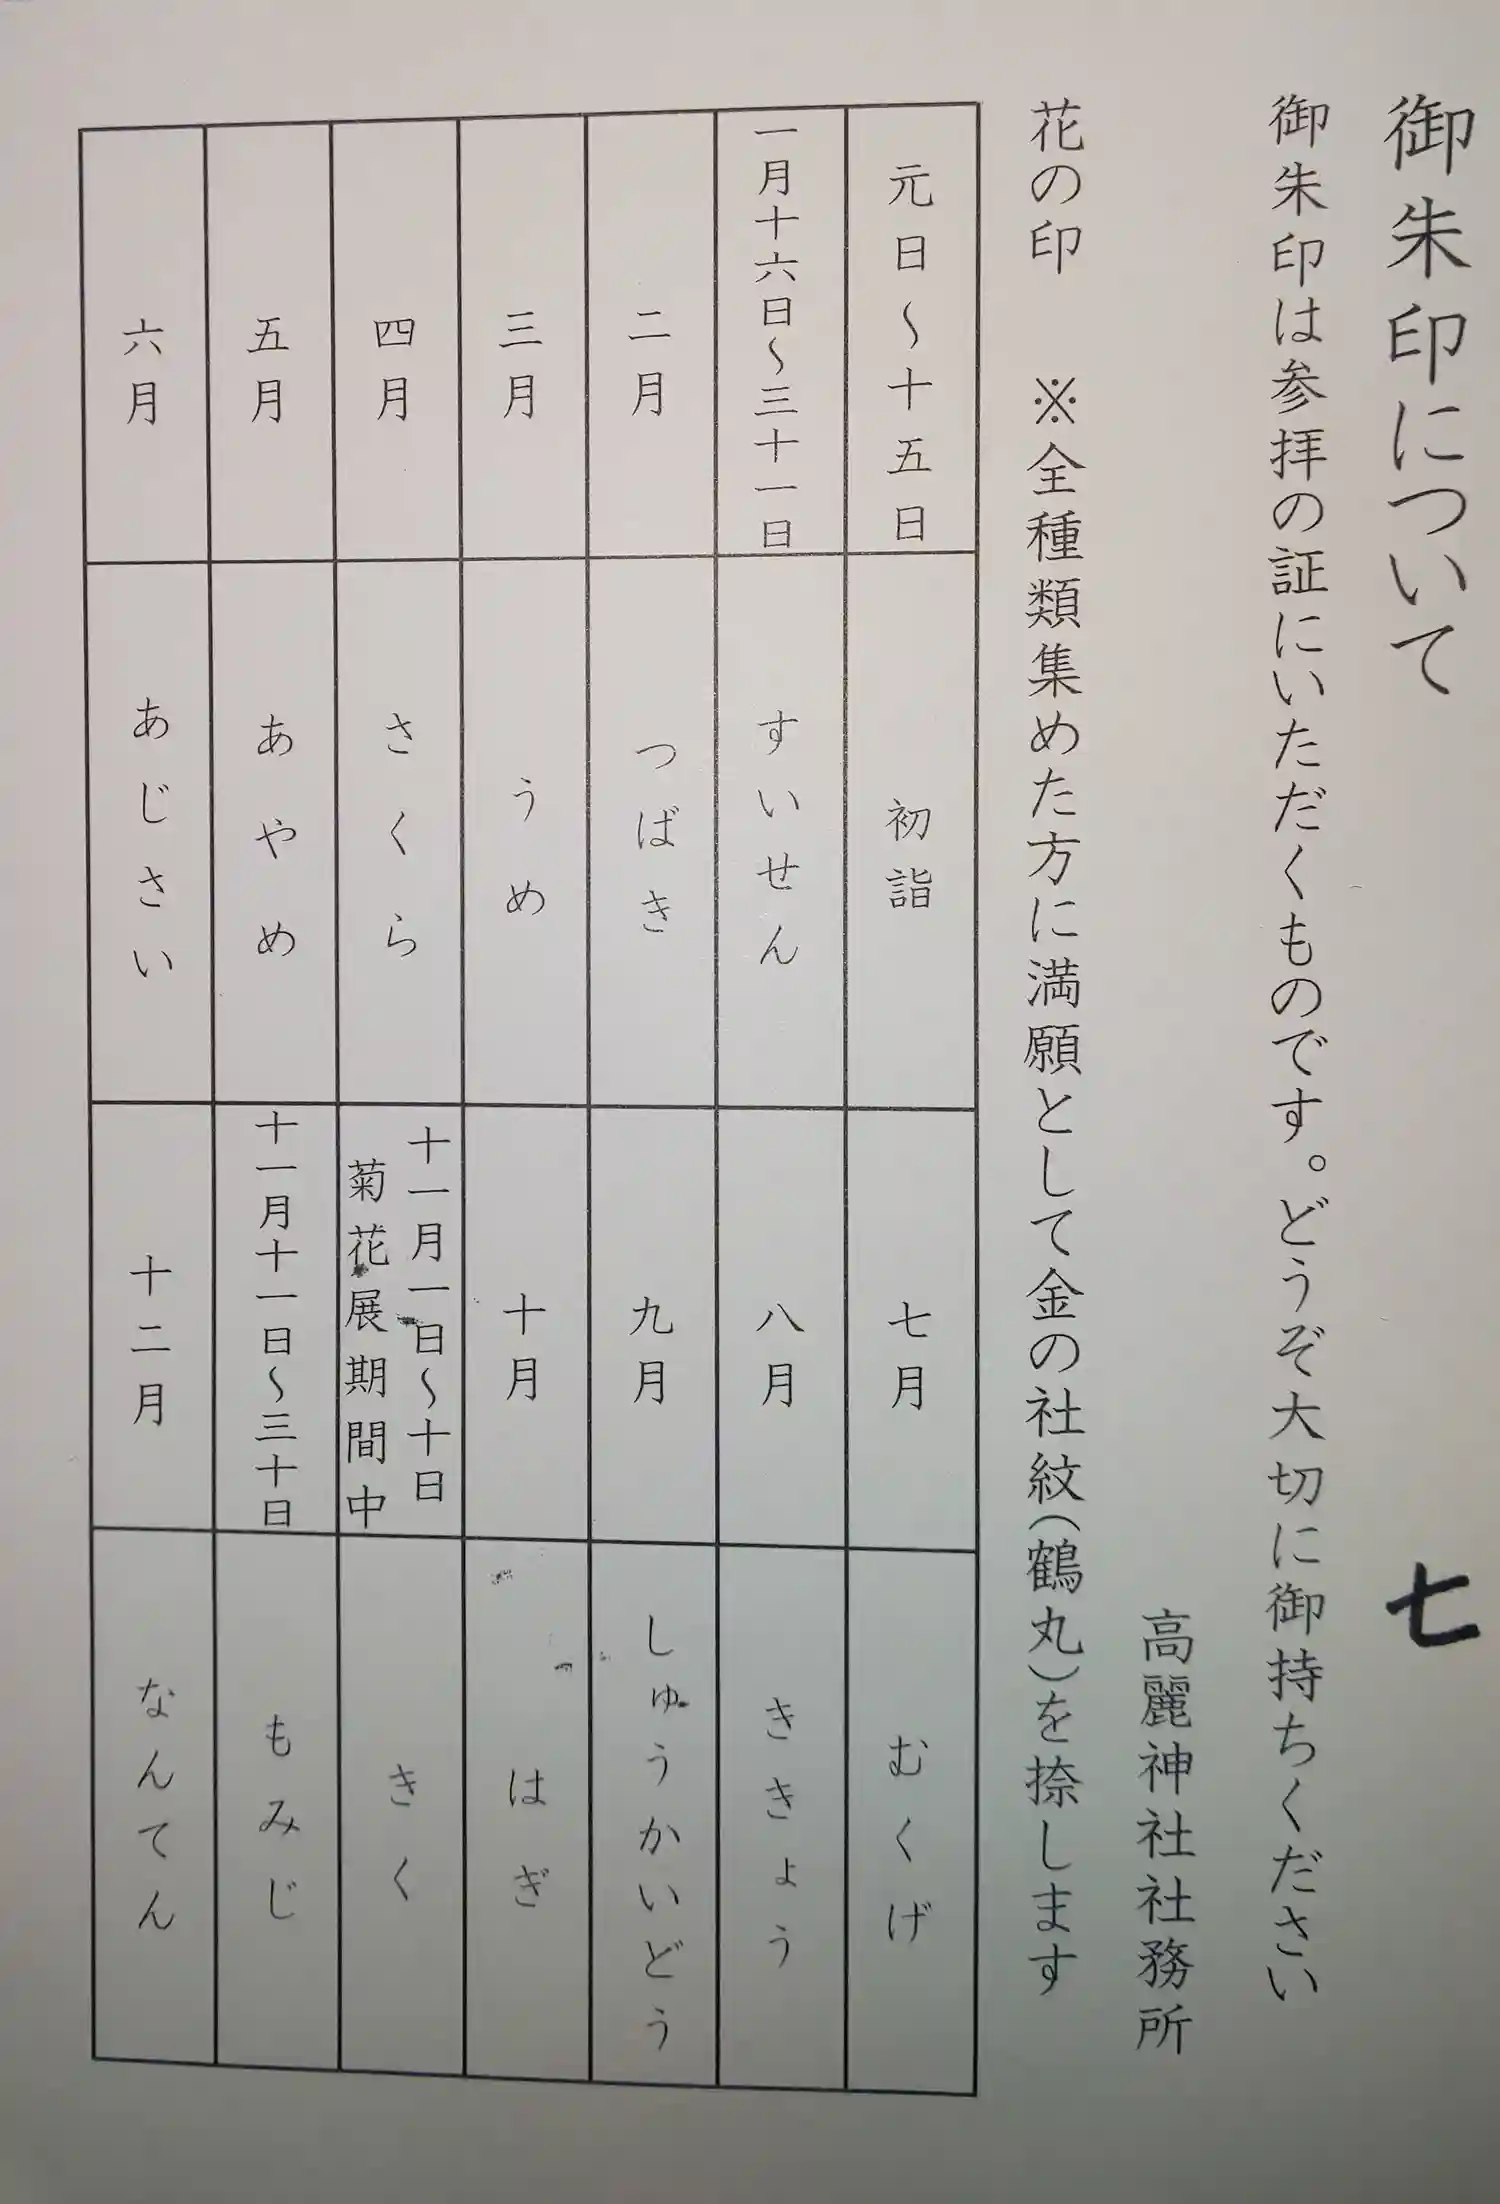 御朱印について
七
御朱印は参拝の証にいただくものです。どうぞ大切に御持ちください
高麗神社社務所
花の印 ※全種類集めた方に満願として金の社紋(鶴丸)を捺します
元日~十五日 初詣 七月 むくげ
一月十六日~三十一日 すいせん 八月 ききょう
二月 つばき 九月 しゅうかいどう
三月 うめ 十月 はぎ
四月 さくら 十一月一日~十日 菊花展期間中 きく
五月 あやめ 十一月十一日~三十日 もみじ
六月 あじさい 十二月 なんてん